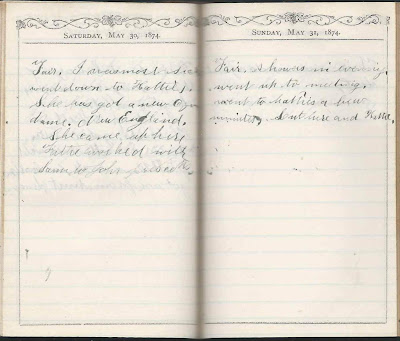 SATURDAY, MAY 30, 1874.
Fair. I was most sick
went down to Hattie's.
She has got a new
dame. New England.
She came up here
worked with
John
SUNDAY, MAY 31, 1874.
Fair. showers in evening.
went up to meeting.
went to Hattie's a few
minutes. but here and